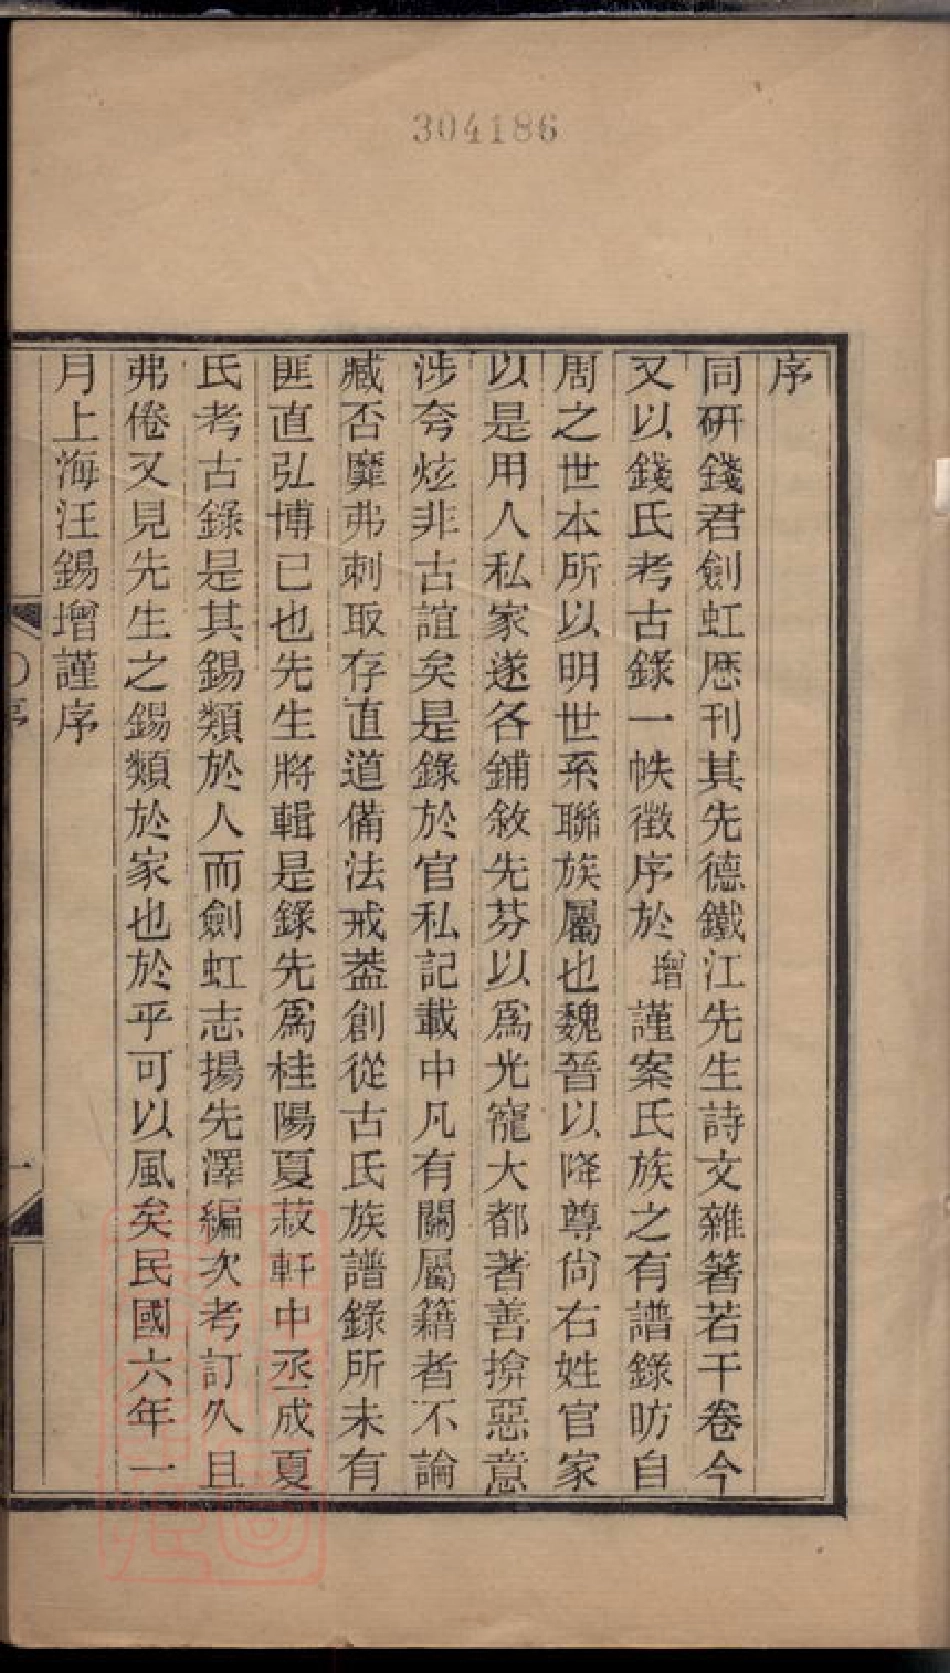 304186
序
同研錢君劍虹歴刊其先德鐵江先生詩文雜箸若干卷今
又以錢氏考古錄一帙徵序於增謹案氏族之有譜錄昉自
周之世本所以明世系聯族屬也魏晉以降尊尙右姓官家
以是用人私家遂各鋪敘先芬以爲光寵大都著善揜惡意
涉夸炫非古誼矣是錄於官私記載中凡有關屬籍者不論
臧否靡弗刺取存直道備法戒葢創從古氏族譜錄所未有
匪直弘博已也先生將輯是錄先爲桂陽夏菽軒中丞成夏
氏考古錄是其錫類於人而劍虹志揚先澤編次考訂久且
弗倦又見先生之錫類於家也於乎可以風矣民國六年一
月上海汪錫增謹序
序
一